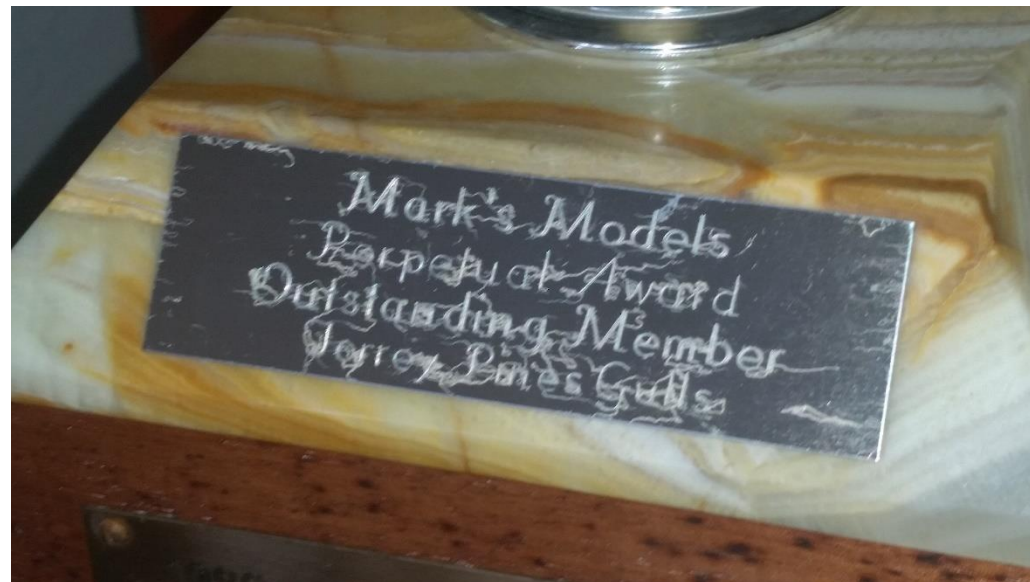 Mark's Models
Perpetual Award
Outstanding Member
Torrey Pines Gulls